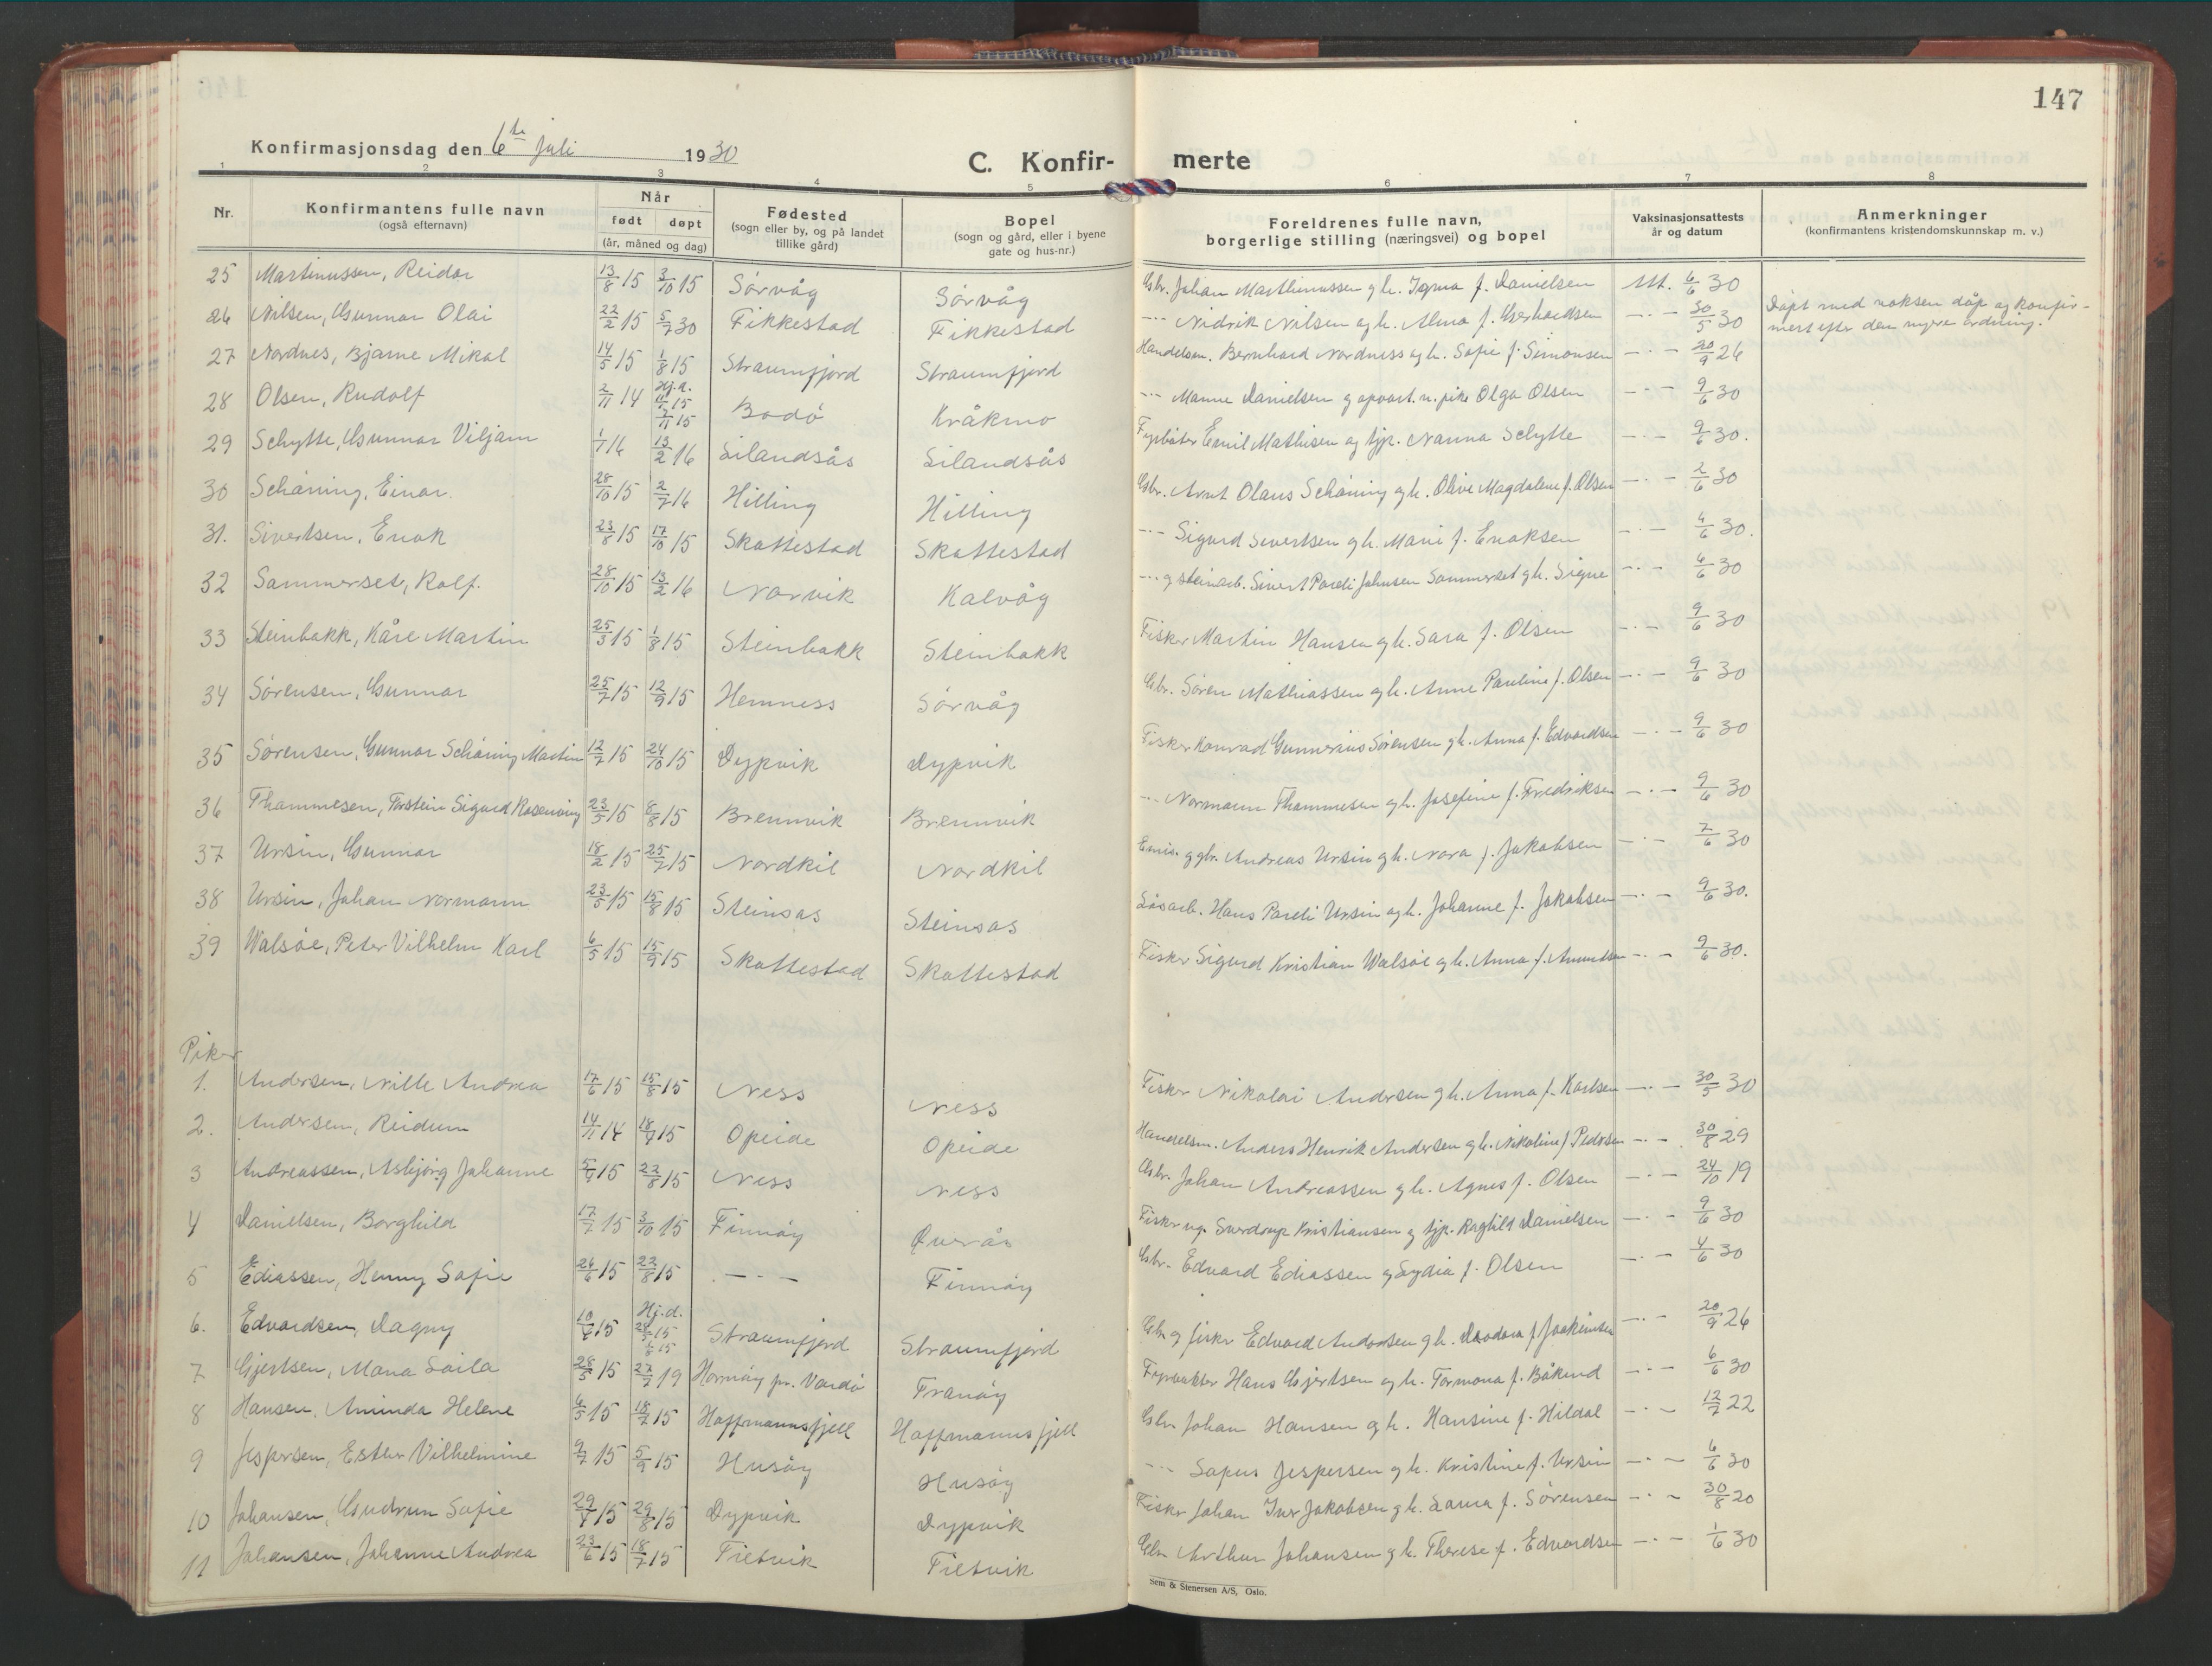 147
Konfirmasjonsdag den 6te juli 1930
C. Konfir- merte
1 2 3 4 5 6 7 8
Nr. Konfirmantens fulle navn (også efternavn) Når født døpt (år, måned og dag) Fødested (sogn eller by, og på landet tillike gård) Bopel (sogn og gård, eller i byene gate og hus-nr.) Foreldrenes fulle navn, borgerlige stilling (næringsvei) og bopel Vaksinasjonsattests år og datum Anmerkninger (konfirmantens kristendomskunnskap m. v.)
25 Martinussen, Reidar 13/8 15 3/10 15 Sørvåg Sørvåg Gbr. Johan Marthinussen og h. f. Danielsen Att. 6/6 30
26 Nilsen, Gunnar Olai 22/2 15 5/7 30 Fikkestad Fikkestad -"- Nidrik Nilsen og h. Alma f. Gerhardsen -"- 30/5 30 Døpt med voksen dåp og konfirmert efter den nyere ordning.
27 Nordnes, Bjarne Mikal 14/5 15 1/8 15 Straumfjord Straumfjord Handelsm. Bernhard Nordness og h. Sofie f. Simonsen -"- 20/9 26
28 Olsen, Rudolf 2/11 14 Hj.d. 15 7/11 15 Bodø Kråkmo -"- Manne Danielsen og opvart. u. pike Olga Olsen -"- 9/6 30
29 Schytte, Gunnar Viljam 1/1 16 13/2 16 Silandsås Silandsås Fyrbøter Emil Mathisen og tjp. Nanna Schytte -"- 9/6 30.
30 Schøning, Einar. 28/10 15 2/7 16 Hilling Hilling Gbr. Arnt Olaus Schøning og h. Olive Magdalene f. Olsen -"- 2/6 30
31. Sivertsen, Enok 23/8 15 17/10 15 Skottestad Skottestad -"- Sigurd Sivertsen og h. Marie f. Enoksen -"- 4/6 30.
32 Sammerset, Rolf. 28/10 15 13/2 16 Narvik Kalvåg -"- og steinarb. Sivert Pareli Johnsen Sommerset og h. Signe -"- 6/6 30
33 Steinbakk, Kåre Martin 25/3 15 1/8 15 Steinbakk Steinbakk Fisker Martin Hansen og h. Sara f. Olsen -"- 9/6 30
34 Sørensen, Gunnar 25/7 15 12/9 15 Hemness Sørvåg Gbr. Søren Mathiassen og h. Anne Pauline f. Olsen -"- 9/6 30
35 Sørensen, Gunnar Schøning Martin 12/7 15 24/10 15 Dypvik Dypvik Fisker Konrad Gunnerius Sørensen og h. Anna f. Edvardsen -"- 9/6 30
36 Thammesen, Torstein Sigurd Rosenving 23/5 15 8/8 15 Brennvik Brennvik -"- Normann Thammesen og h. Josefine f. Fredriksen -"- 9/6 30
37 Ursin, Gunnar 18/2 15 25/7 15 Nordkil Nordkil Emis. og gbr. Andreas Ursin og h. Nora f. Jakobsen -"- 7/6 30
38 Ursin, Johan Normann 23/5 15 15/8 15 Steinsås Steinsås Løsarb. Hans Pareli Ursin og h. Johanne f. Jakobsen -"- 9/6 30.
39 Walsøe, Peter Vilhelm Karl 6/5 15 15/9 15 Skottestad Skottestad Fisker Sigurd Kristian Walsøe og h. Anna f. Amundsen -"- 9/6 30.
Piker
1. Andersen, Nille Andrea 17/6 15 15/8 15 Ness Ness Fisker Nikolai Andersen og h. Anna f. Karlsen -"- 30/5 30
2. Andersen, Reidun 14/11 14 18/7 15 Opeide Opeide Handelsm. Anders Henrik Andersen og h. Nikoline f. Pedersen -"- 30/8 29
3 Andreassen, Asbjørg Johanne 15 22/8 15 Ness Ness Gbr. Johan Andreassen og h. Agnes f. Olsen -"- 24/10 19
4 Danielsen, Borghild 17/7 15 3/10 15 Finnøy Øverås Fisker ug. Sverdrup Kristiansen og tjp. Raghild Danielsen -"- 9/6 30
5 Ediassen, Henny Sofie 26/6 15 22/8 15 -"- Finnøy Gbr. Edvard Ediassen og Lydia f. Olsen -"- 4/6 30
6. Edvardsen, Dagny 10/ 15 Hj.d. 15 15 Straumfjord Straumfjord Gbr og fisker Edvard Andersen og h. f. Joakimsen -"- 20/9 26
7 Gjertsen, Mana Laila 28/5 15 27/7 19 Hornøy pr. Vardø Tranøy Fyrvokter Hans Gjertsen og h. Tormona f. Båkind -"- 6/6 30
8 Hansen, Aminda Helene 6/5 15 18/7 15 Hoffmannsfjell Hoffmannsfjell Gbr Johan Hansen og h. Hansine f. Hildal -"- 12/7 22
9 Jespersen, Esther Vilhelmine 9/7 15 5/9 15 Husøy Husøy -"- Sapus Jespersen og h. Kristine f. Ursin -"- 6/6 30
10 Johansen, Gudrun Sofie 29/ 15 29/8 15 Dypvik Dypvik Fisker Johan Iver Jakobsen og h. Laura f. Sørensen -"- 30/8 20
11 Johansen, Johanne Andrea 23/6 15 18/7 15 Tietvik Tietvik Gbr Arthur Johansen og h. Therese f. Edvardsen -"- 1/6 30
Sem & Stenersen A/S, Oslo.